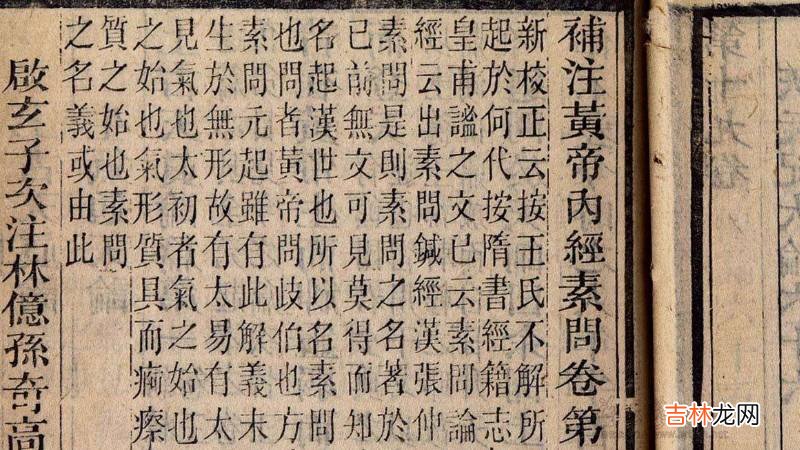 補注黃帝內經素問卷第
新校正云按王氏不解所
起於何代按隋書經籍志
皇甫謐之文已云素問論
經云出素問鍼經漢張仲
素問是則素問之名著於
已前無文可見莫得而知
名起漢世也所以名素問
也問者黃帝問歧伯也方
素問元起雖有此解義未
生於無形故有太易有太
見氣也太初者氣之始也
之始也氣形質具而痾瘵
質之始也素問
之名義或由此
啟玄子次注林億孫奇高
吉林龙网